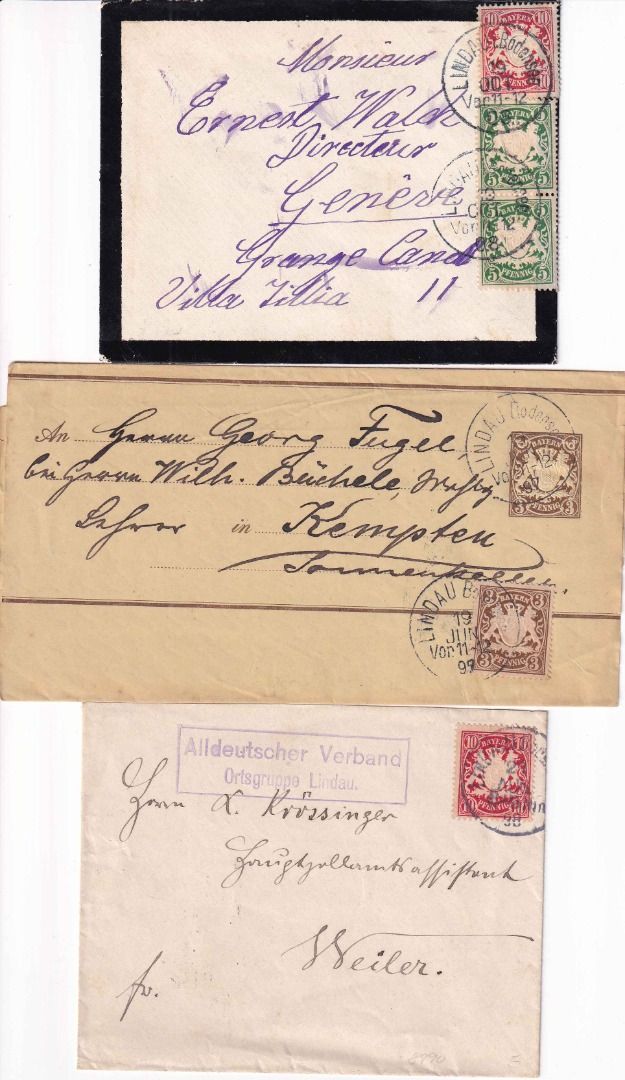 Monsieur
Ernest Walch
Directeur
Genève
Grange Canal
Villa Zillia 11
BAYERN
10 10
LINDAU i.Bodensee
15
OCT
Vor 11-12
BAYERN
5 5
PFENNIG
LINDAU
OCT
Vor 12
98
BAYERN
5 5
PFENNIG
An Herrn Georg Fugel,
bei Herrn Wilh. Büchele,
Lehrer in Kempten
LINDAU Bodensee
97
BAYERN
3 3
PFENNIG
LINDAU B
19
JUN
Vor 11-12
97
BAYERN
3 3
PFENNIG
Alldeutscher Verband
Ortsgruppe Lindau.
Herrn L. Krössinger
Hauptzollamtsassistent
Weiler.
fr.
10 10
BAYERN
PFENNIG
98